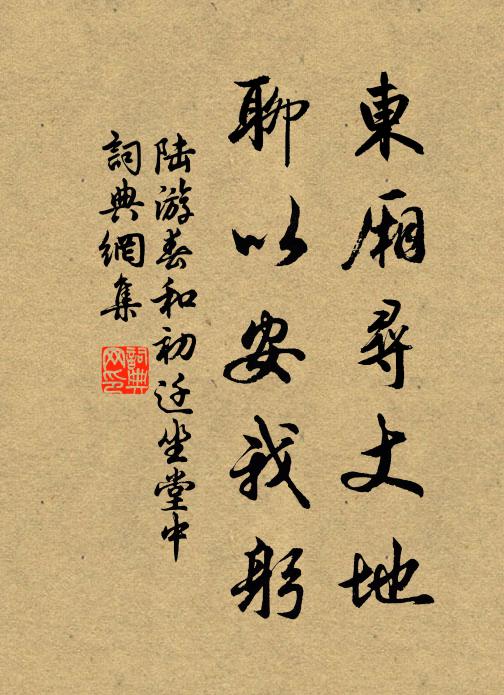 東廂尋丈地
聊以安我躬
陆游春和初迁坐堂中
詞典網集
詞典網印